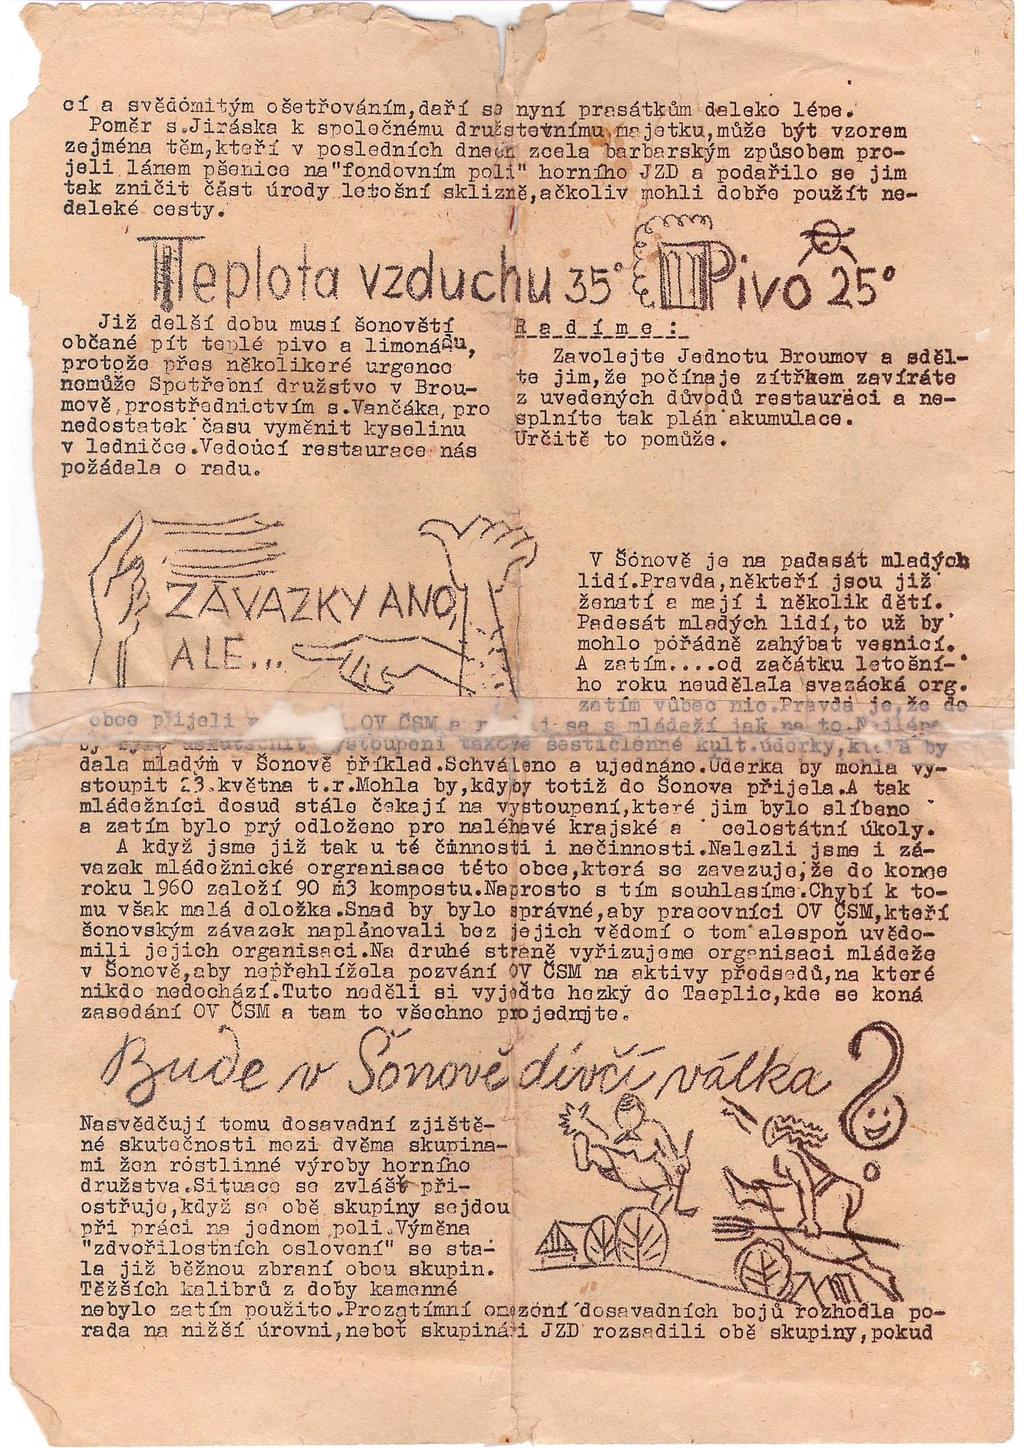 cí a svědómitým ošetřováním,daří se nyní prasátkům daleko lépe.
Poměr s.Jiráska k společnému družstevnímu majetku,může být vzorem
zejména těm,kteří v posledních dnech zcela barbarským způsobem pro-
jeli lánem pšenice na"fondovním poli" horního JZD a podařilo se jim
tak zničit část úrody letošní sklizně,ačkoliv mohli dobře použít ne-
daleké cesty.
Teplota vzduchu 35° Pivo 25°
Již delší dobu musí šonovští
občané pít teplé pivo a limonádu,
protože přes několikeré urgence
nemůže Spotřební družstvo v Brou-
mově,prostřednictvím s.Vančáka,pro
nedostatek času vyměnit kyselinu
v ledničce.Vedoucí restaurace nás
požádala o radu.
R a d í m e :
Zavolejte Jednotu Broumov a sděl-
te jim,že počínaje zítřkem zavíráte
z uvedených důvodů restauráci a ne-
splníte tak plán akumulace.
Určitě to pomůže.
ZÁVAZKY ANO,
ALE...
V Šónově je na padasát mladých
lidí.Pravda,někteří jsou již
ženatí a mají i několik dětí.
Padesát mladých lidí,to už by
mohlo pořádně zahýbat vesnicí.
A zatím....od začátku letošní-
ho roku neudělala svazácká org.
zatím vůbec nic.Pravda je,že do
obce přijeli OV ČSM a se s mládeží jak na to.Nejlépe
by bylo uskutečnit vystoupení takové šestičlenné kult.úderky,která by
dala mladým v Šonově příklad.Schváleno a ujednáno.Úderka by mohla vy-
stoupit 23.května t.r.Mohla by,kdyby totiž do Šonova přijela.A tak
mládežníci dosud stále čekají na vystoupení,které jim bylo slíbeno
a zatím bylo prý odloženo pro naléhavé krajské a celostátní úkoly.
A když jsme již tak u té činnosti i nečinnosti.Nalezli jsme i zá-
vazek mládežnické orgranisace této obce,která se zavazuje,že do konce
roku 1960 založí 90 m3 kompostu.Naprosto s tím souhlasíme.Chybí k to-
mu však malá doložka.Snad by bylo správné,aby pracovníci OV ČSM,kteří
šonovským závazek naplánovali bez jejich vědomí o tom alespoň uvědo-
mili jejich organisaci.Na druhé straně vyřizujeme organisaci mládeže
v Šonově,aby nepřehlížela pozvání OV ČSM na aktivy předsedů,na které
nikdo nedochází.Tuto neděli si vyjeďte hezký do Taeplic,kde se koná
zasedání OV ČSM a tam to všechno projednjte.
Bude v Šonově dívčí válka?
Nasvědčují tomu dosavadní zjiště-
né skutečnosti mezi dvěma skupina-
mi žen róstlinné výroby horního
družstva.Situace se zvlášť při-
ostřuje,když se obě skupiny sejdou
při práci na jednom poli.Výměna
"zdvořilostních oslovení" se sta-
la již běžnou zbraní obou skupin.
Těžších kalibrů z doby kamenné
nebylo zatím použito.Prozatímní omezení dosavadních bojů rozhodla po-
rada na nižší úrovni,neboť skupináři JZD rozsadili obě skupiny,pokud